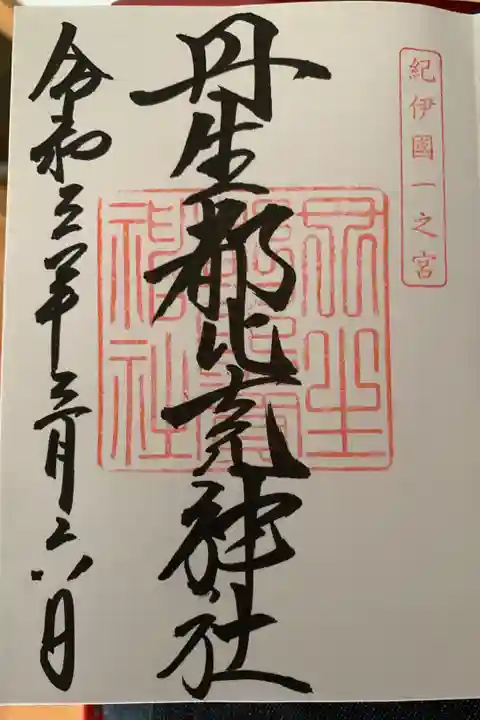 紀伊國一之宮
丹生都比売神社
丹生都比賣神社
令和三年三月六日